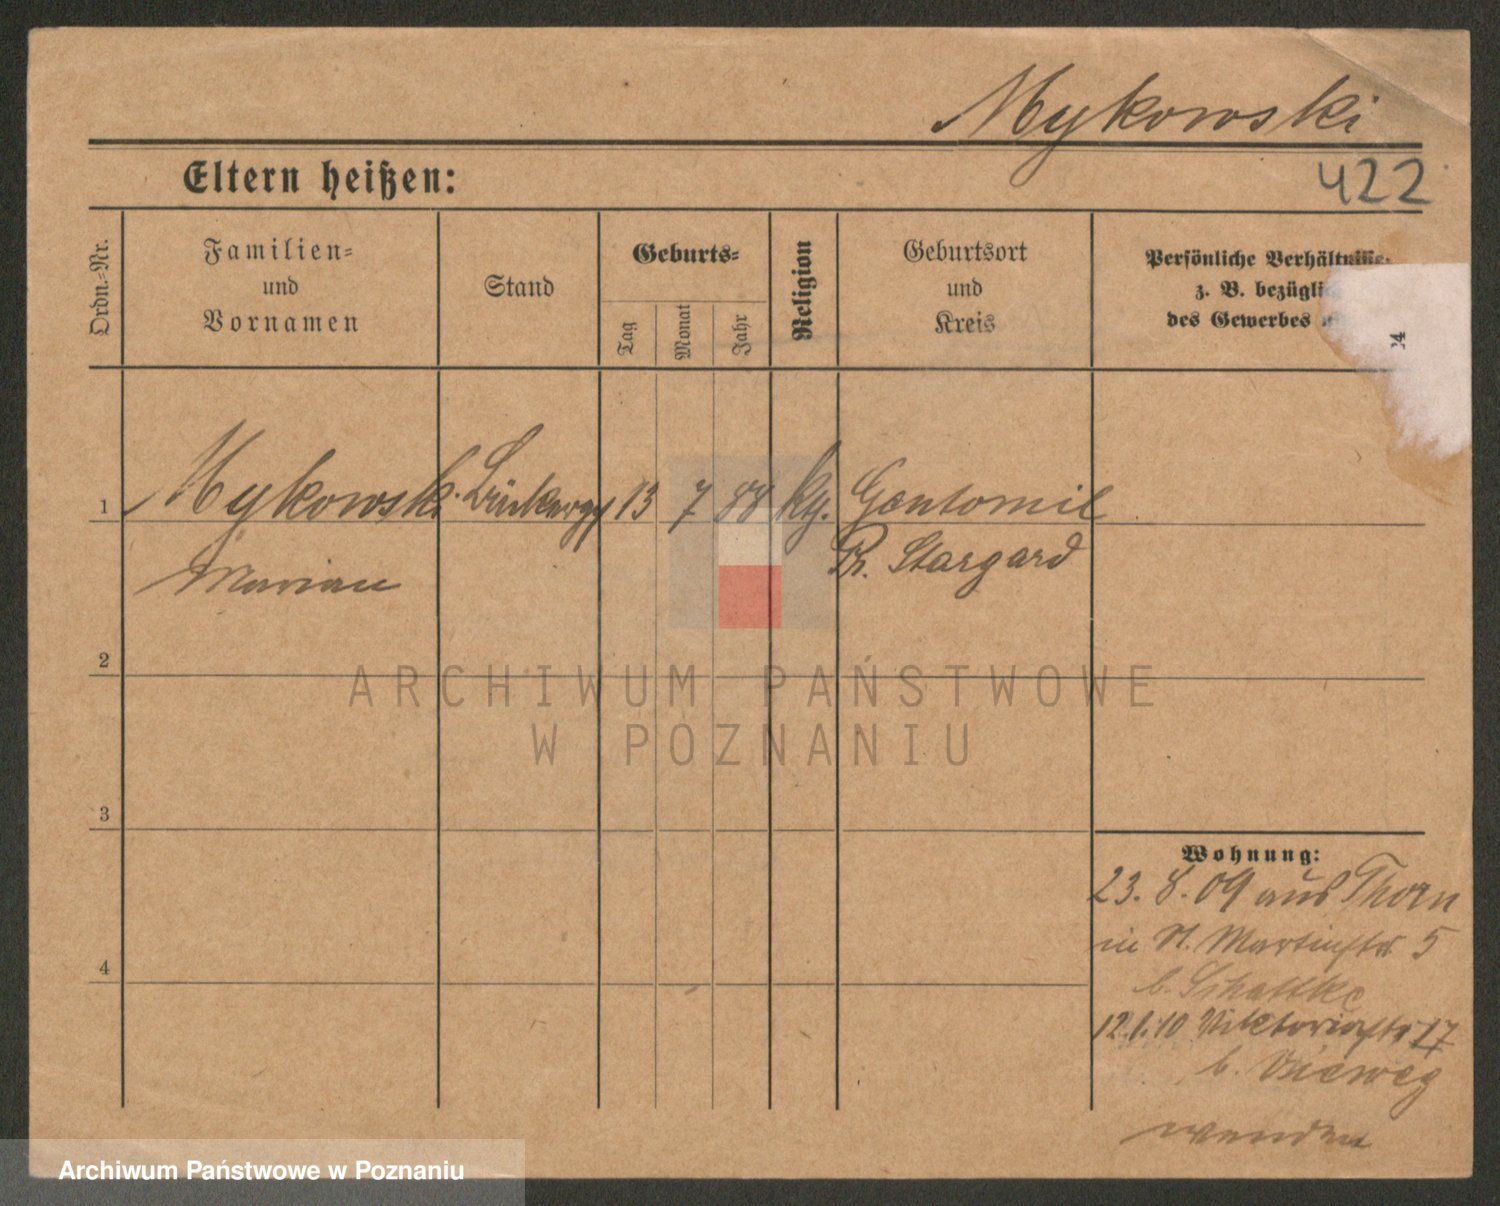 Mykowski
422
Eltern heißen:
Ordn.-Nr.
Familien-
und
Vornamen
Stand
Geburts-
Tag
Monat
Jahr
Religion
Geburtsort
und
Kreis
Persönliche Verhältnisse
z. B. bezügli
des Gewerbes
1
Mykowski
13 7 88 kth. Gentomil
Marian
Pr. Stargard
2
3
4
Wohnung:
23. 8. 09 aus Thorn
in St. Martinstr 5
b. Schattke
12.1.10 Viktoriastr 17
b. Vieweg
wenden
ARCHIWUM PAŃSTWOWE
W POZNANIU
Archiwum Państwowe w Poznaniu